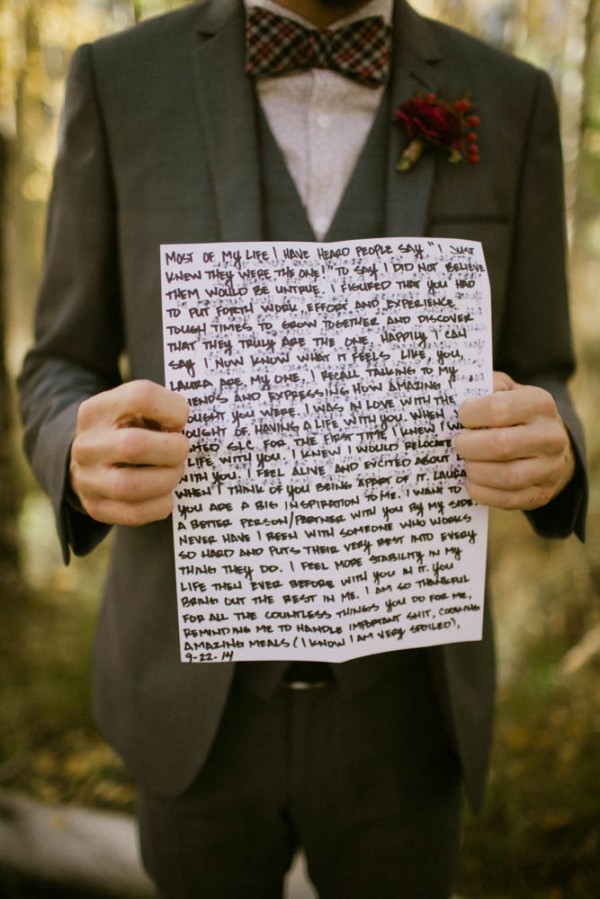 MOST OF MY LIFE I HAVE HEARD PEOPLE SAY, "I JUST
KNEW THEY WERE THE ONE!" TO SAY I DID NOT BELIEVE
THEM WOULD BE UNTRUE. I FIGURED THAT YOU HAD
TO PUT FORTH WORK, EFFORT AND EXPERIENCE
TOUGH TIMES TO GROW TOGETHER AND DISCOVER
THAT THEY TRULY ARE THE ONE. HAPPILY, I CAN
SAY I NOW KNOW WHAT IT FEELS LIKE, YOU,
LAURA ARE MY ONE. I RECALL TALKING TO MY
IENDS AND EXPRESSING HOW AMAZING I
OUGHT YOU WERE. I WAS IN LOVE WITH THE
OUGHT OF HAVING A LIFE WITH YOU. WHEN
ITED SLC FOR THE FIRST TIME I KNEW I WA
LIFE WITH YOU. I KNEW I WOULD RELOCATE
WITH YOU. I FEEL ALIVE AND EXCITED ABOUT
WHEN I THINK OF YOU BEING APART OF IT. LAURA
YOU ARE A BIG INSPIRATION TO ME. I WANT TO
A BETTER PERSON/PARTNER WITH YOU BY MY SIDE.
NEVER HAVE I BEEN WITH SOMEONE WHO WORKS
SO HARD AND PUTS THEIR VERY BEST INTO EVERY
THING THEY DO. I FEEL MORE STABILITY IN MY
LIFE THEN EVER BEFORE WITH YOU IN IT. YOU
BRING OUT THE BEST IN ME. I AM SO THANKFUL
FOR ALL THE COUNTLESS THINGS YOU DO FOR ME,
REMINDING ME TO HANDLE IMPORTANT SHIT, COOKING
AMAZING MEALS (I KNOW I AM VERY SPOILED),
9-22-14